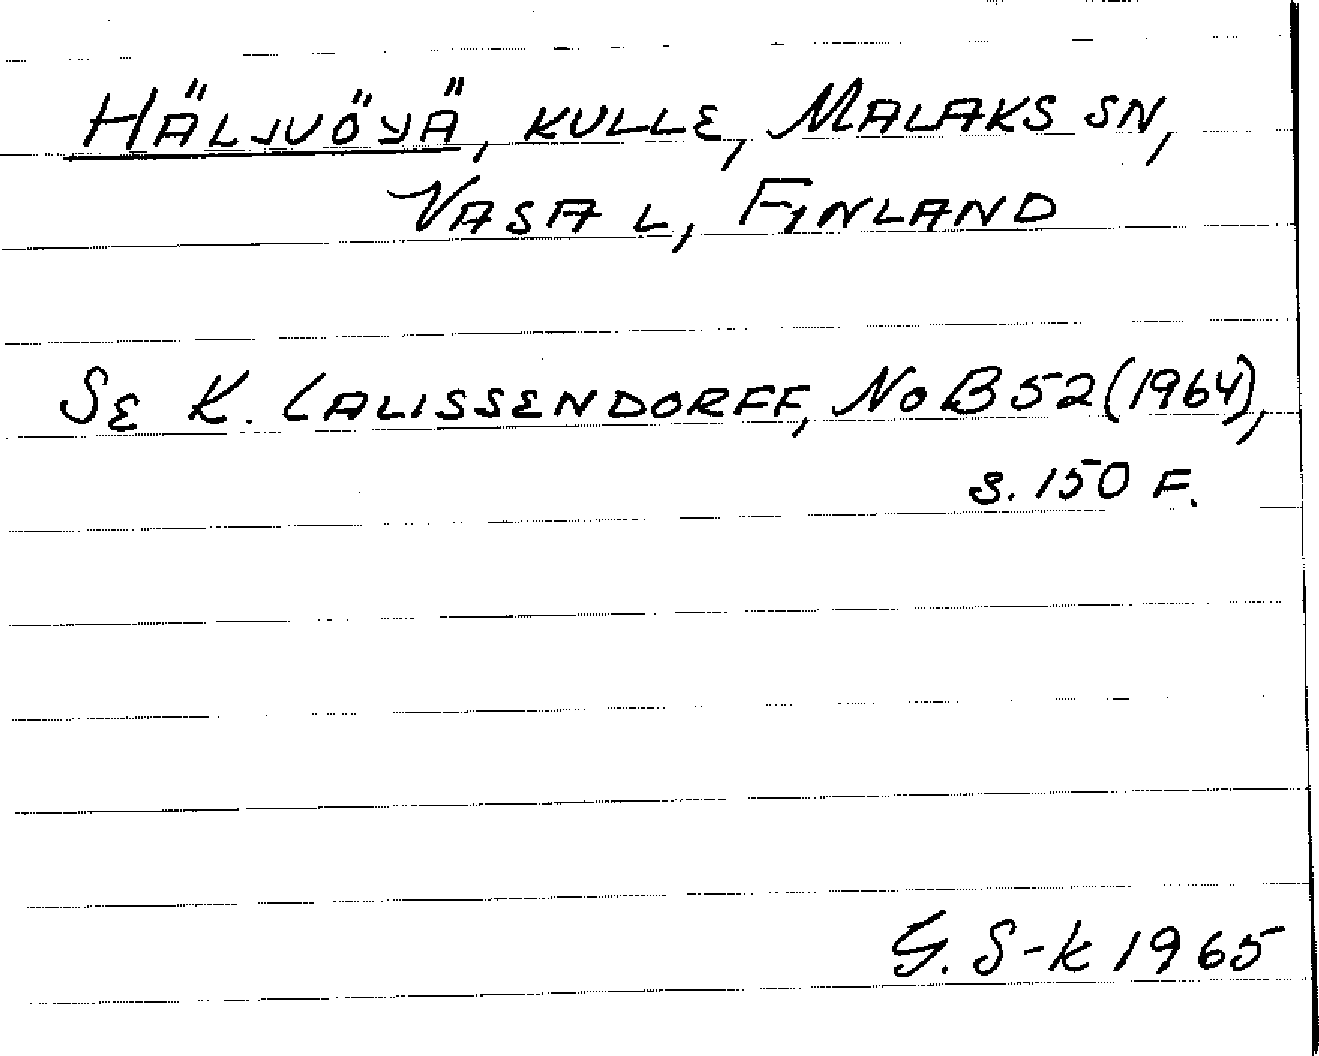 HÄLJVÖYÄ, KULLE, MALAKS SN,
VASA L, FINLAND
SE K. ZALISSENDORFF, NoB 52 (1964),
s. 150 F.
G. S-k 1965